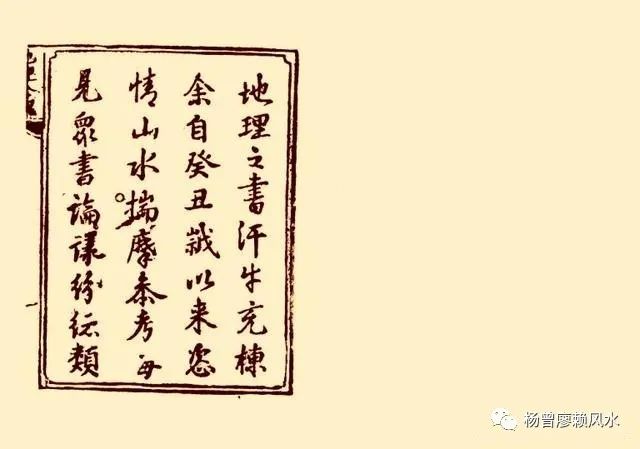 地理之書汗牛充棟
余自癸丑歲以来恣
情山水揣摩叅考每
見眾書論議紛紜類
杨曾廖赖风水